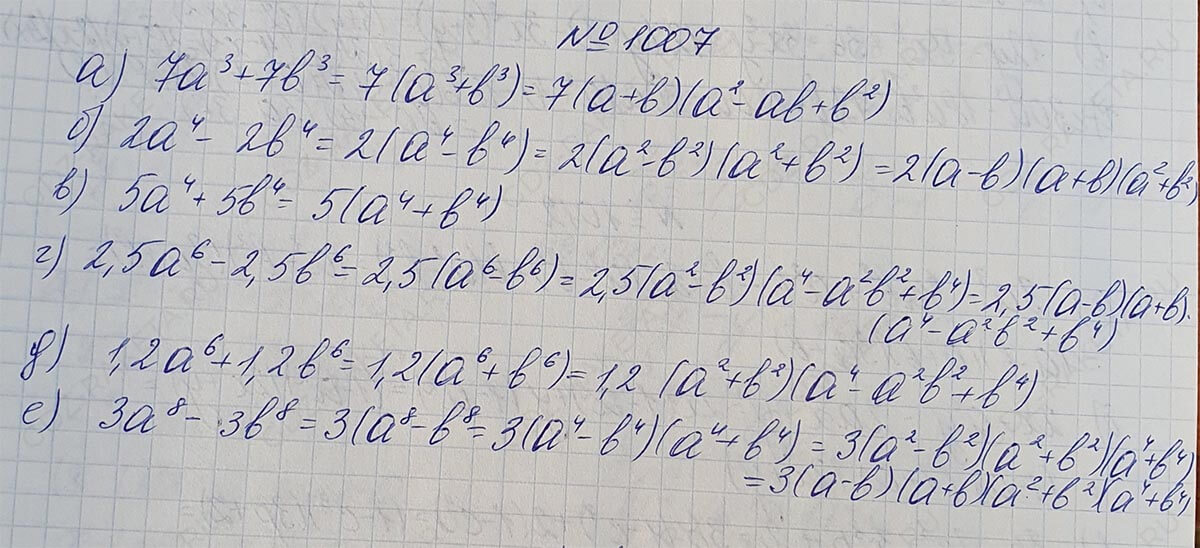 № 1007
а) 7a³ + 7b³ = 7(a³+b³) = 7(a+b)(a² - ab + b²)
б) 2a⁴ - 2b⁴ = 2(a⁴ - b⁴) = 2(a² - b²)(a² + b²) = 2(a-b)(a+b)(a²+b²)
в) 5a⁴ + 5b⁴ = 5(a⁴ + b⁴)
г) 2,5a⁶ - 2,5b⁶ = 2,5(a⁶ - b⁶) = 2,5(a² - b²)(a⁴ - a²b² + b⁴) = 2,5(a-b)(a+b)·
(a⁴ - a²b² + b⁴)
д) 1,2a⁶ + 1,2b⁶ = 1,2(a⁶ + b⁶) = 1,2 (a² + b²)(a⁴ - a²b² + b⁴)
е) 3a⁸ - 3b⁸ = 3(a⁸ - b⁸ = 3(a⁴ - b⁴)(a⁴ + b⁴) = 3(a² - b²)(a² + b²)(a⁴+b⁴)
= 3(a-b)(a+b)(a² + b²)(a⁴+b⁴)